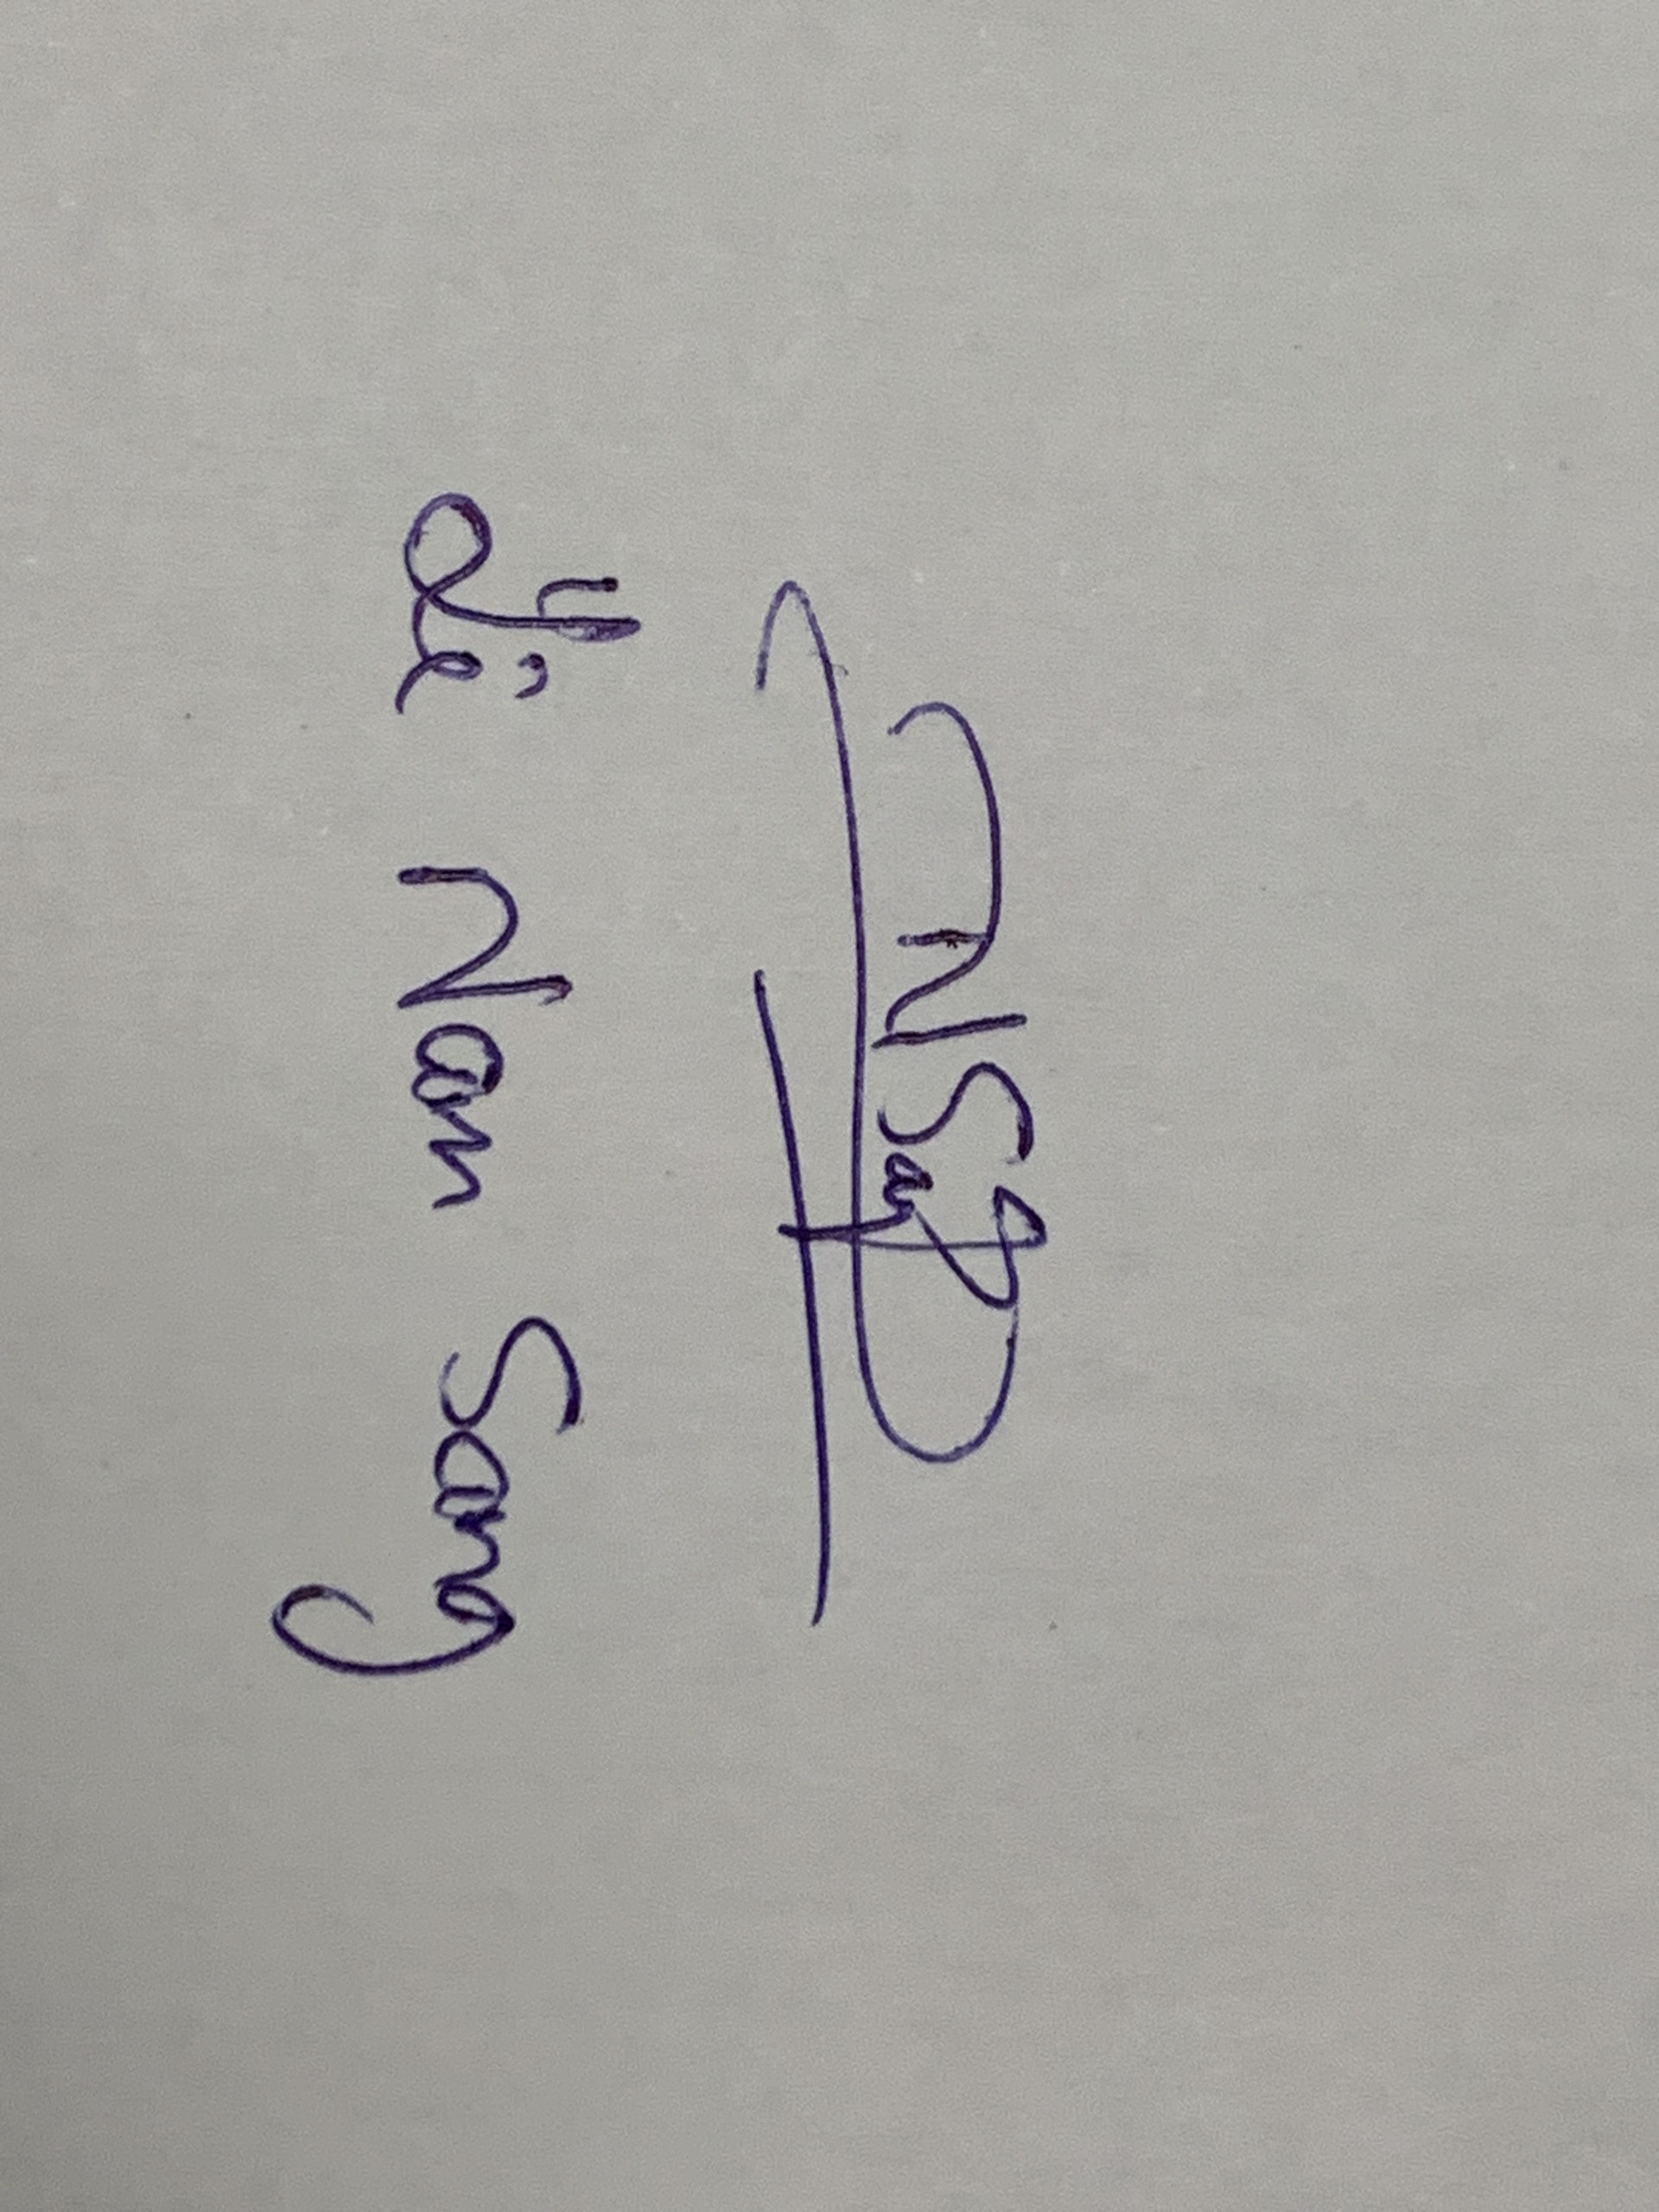 NSa
Lê Nam Sang